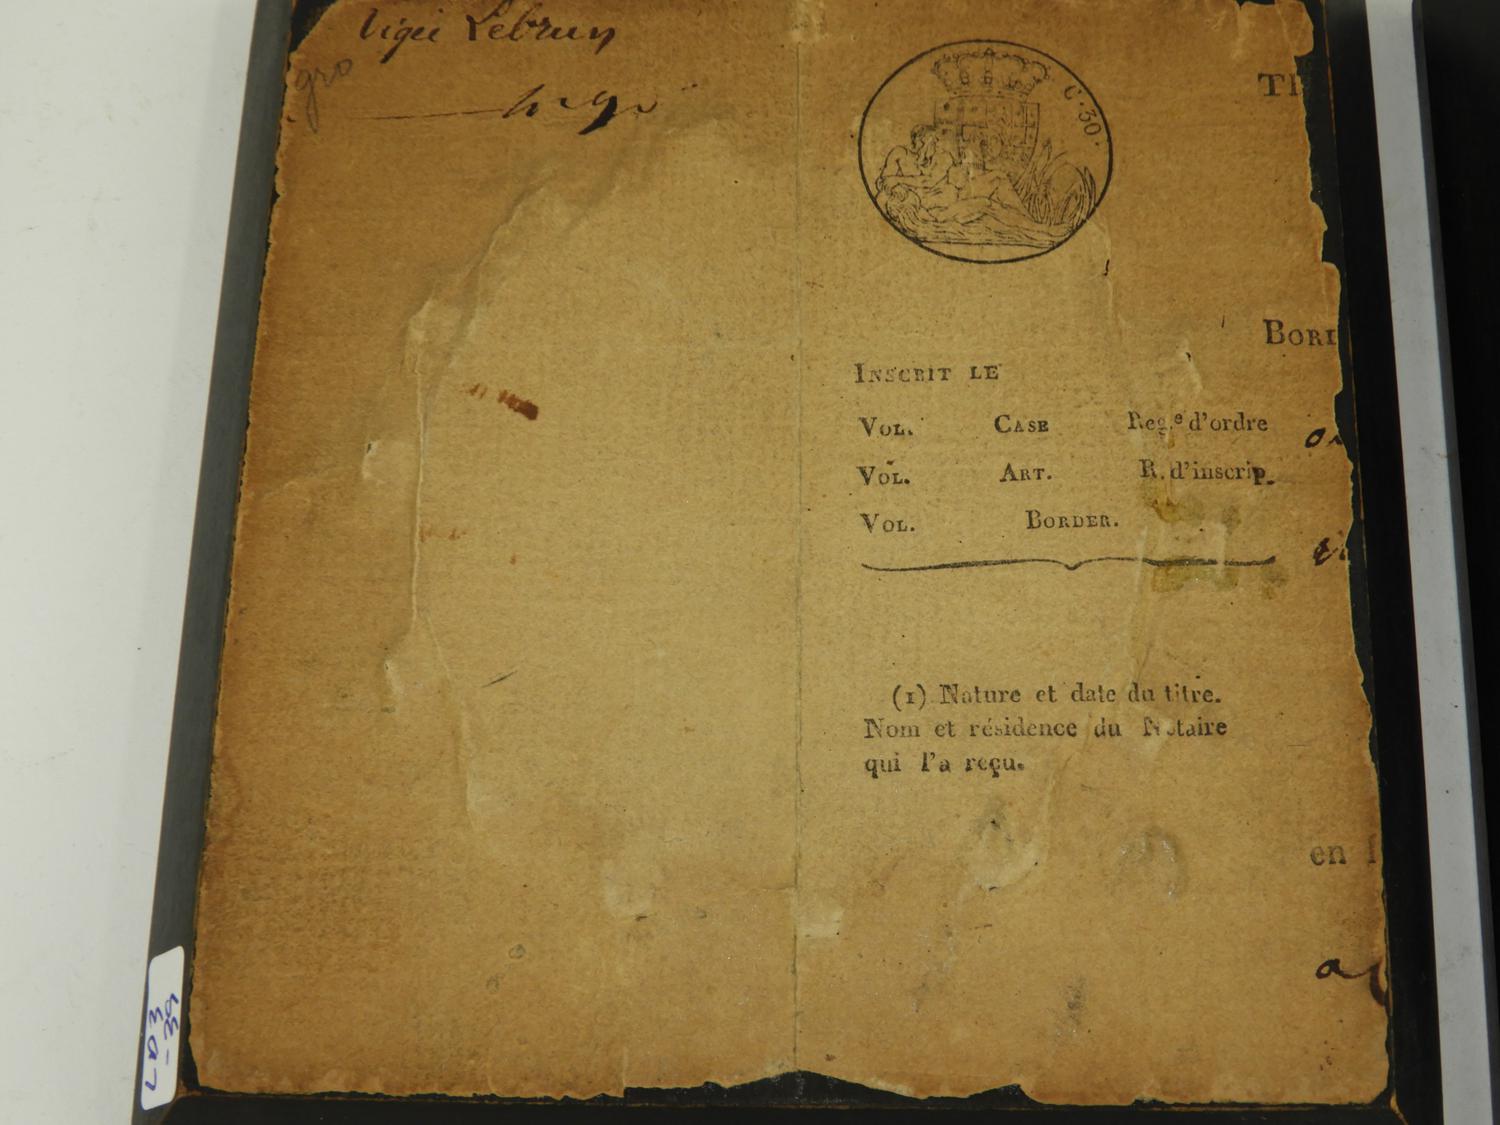 Vigée Lebrun
gro
C. 30.
TI
BORD
INSCRIT LE
VOL. CASE Reg.e d'ordre
VOL. ART. R. d'inscrip.
VOL. BORDER.
(1) Nature et date du titre.
Nom et résidence du Notaire
qui l'a reçu.
en